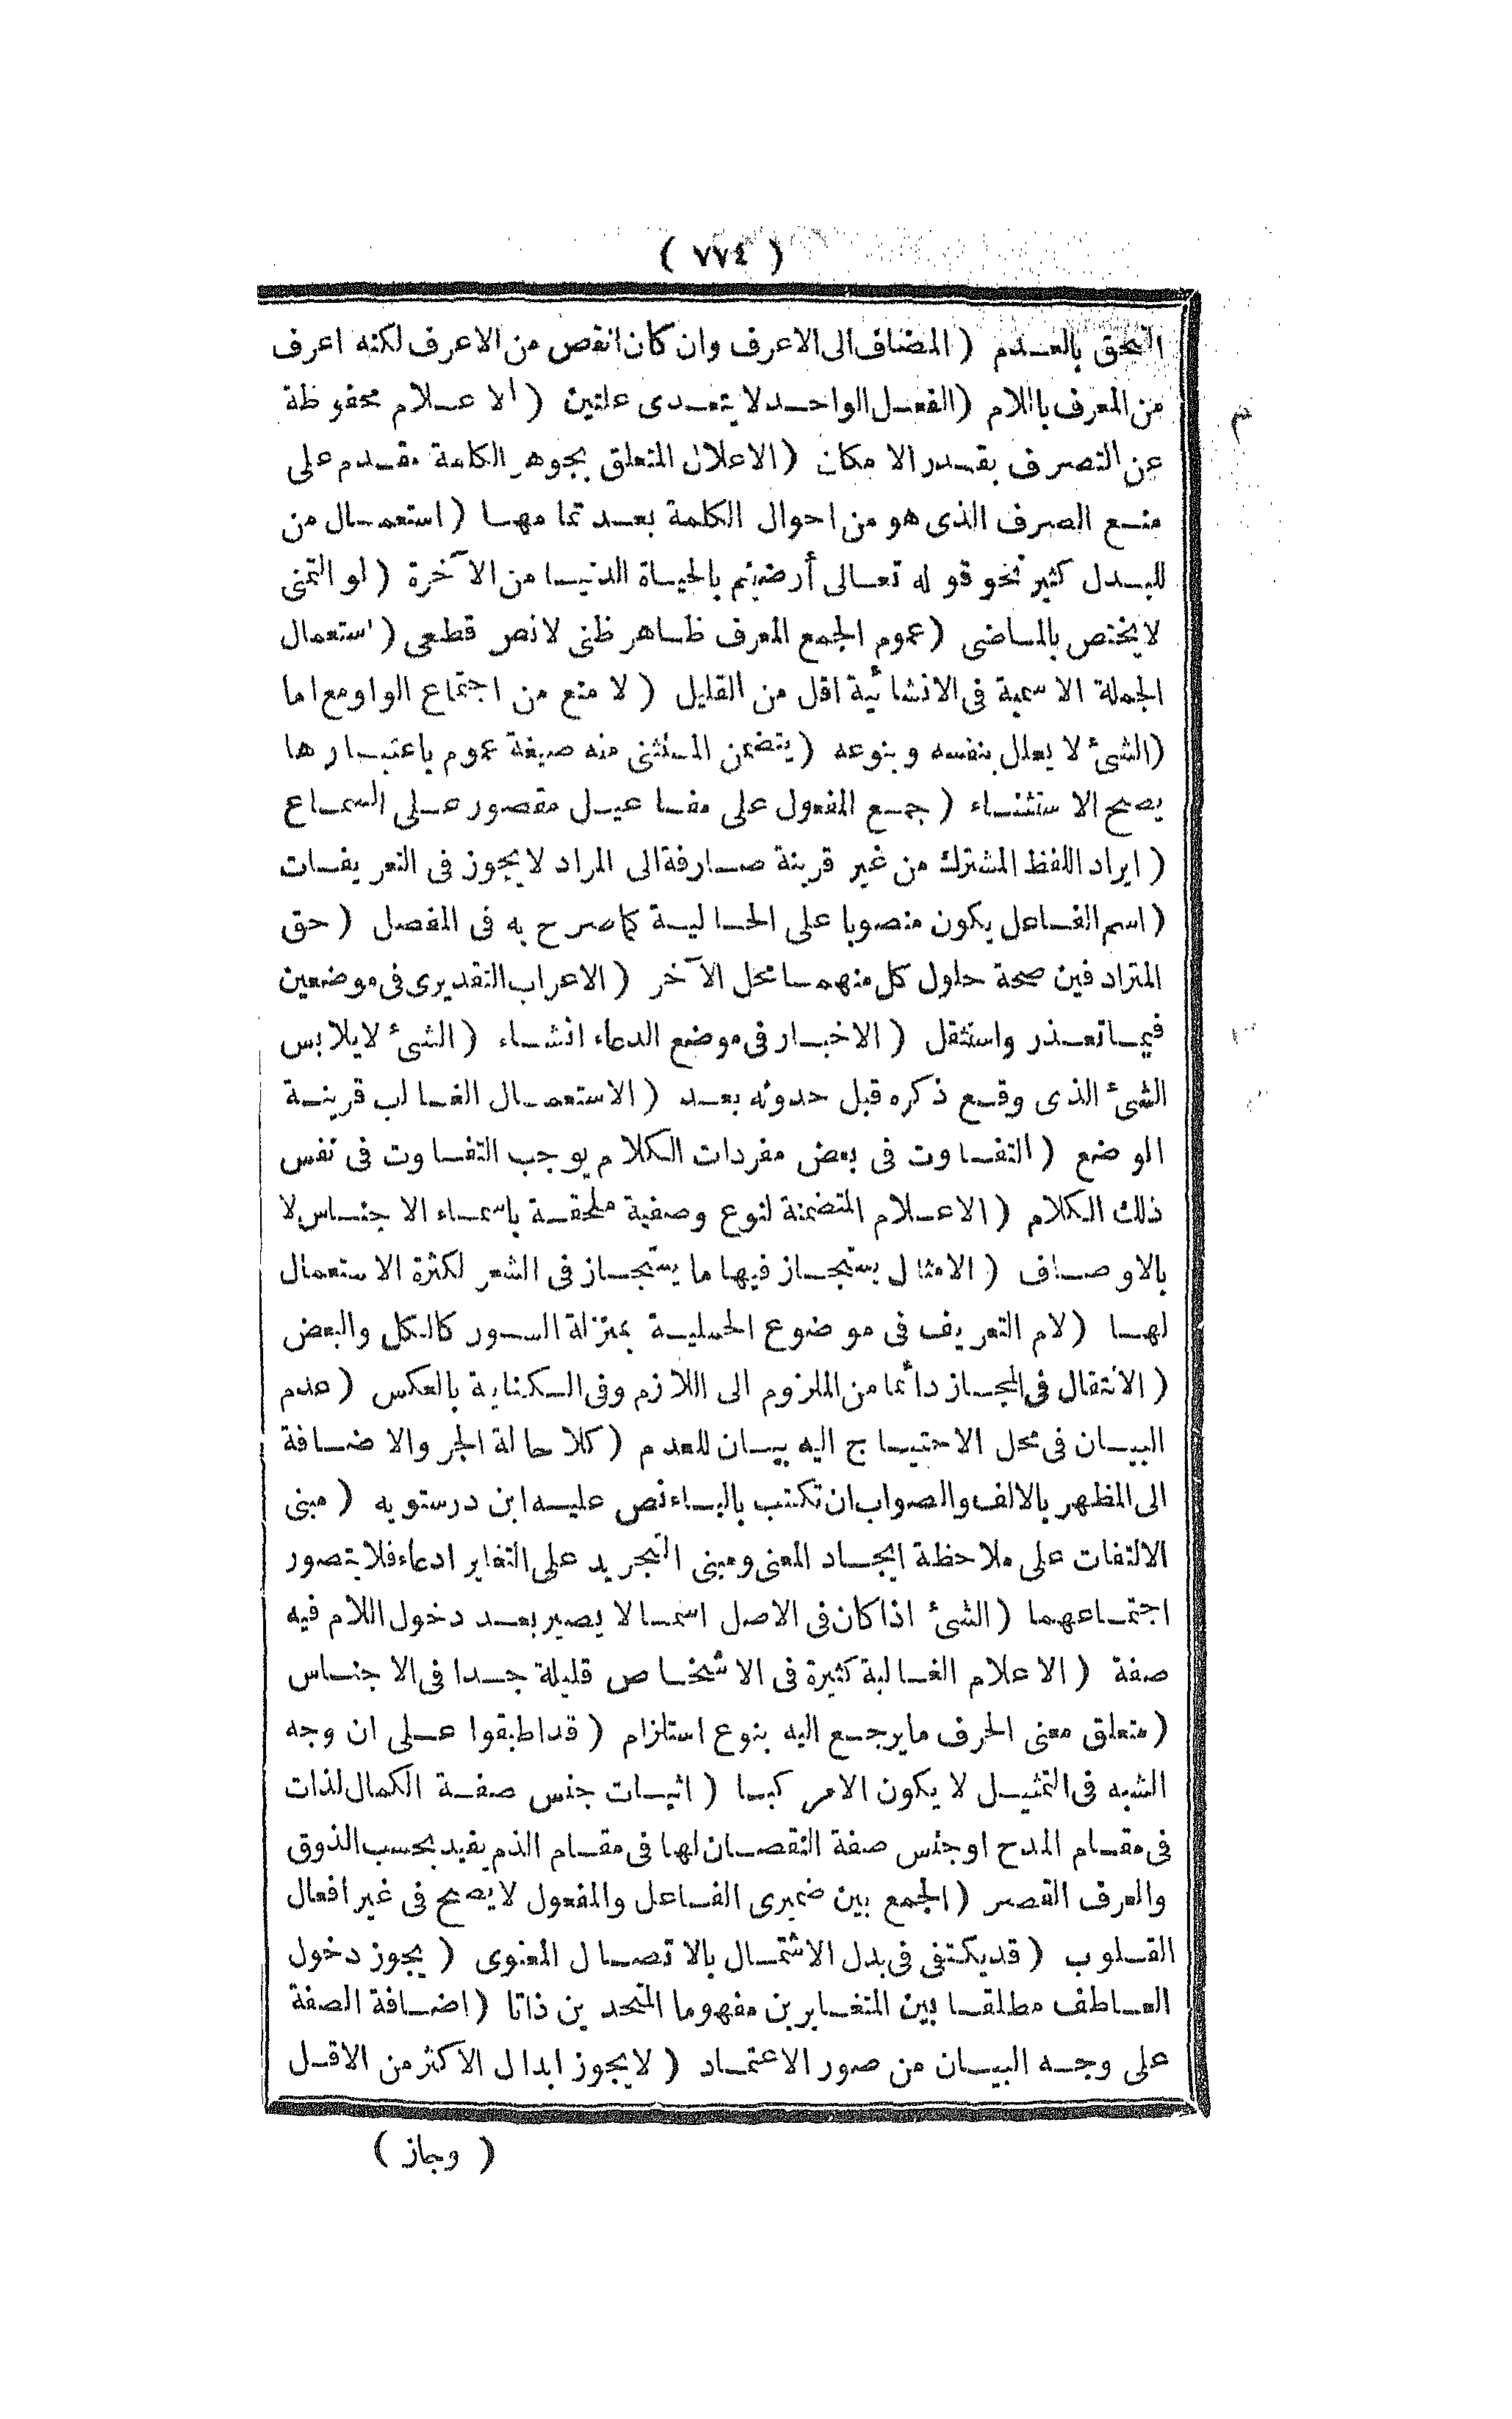 ( ٧٧٤ )
التحق بالعدم ( المضاف الى الاعرف وان كان انقص من الاعرف لكنه اعرف
من المعرف باللام ( الفعل الواحد لا يتعدى علتين ( الاعلام محفوظة
عن التصرف بقدر الامكان ( الاعلال المتعلق بجوهر الكلمة مقدم على
منع الصرف الذى هو من احوال الكلمة بعد تمامها ( استعمال من
للبدل كثير نحو قوله تعالى أرضيتم بالحياة الدنيا من الآخرة ( لو التمنى
لا يختص بالماضى ( عموم الجمع المعرف ظاهر ظنى لا نص قطعى ( استعمال
الجملة الاسمية فى الانشائية اقل من القليل ( لا منع من اجتماع الواو مع اما
( الشئ لا يعلل بنفسه وبنوعه ( يتضمن المستثنى منه صيغة عموم باعتبارها
يصح الاستثناء ( جمع المفعول على مفاعيل مقصور على السماع
( ايراد اللفظ المشترك من غير قرينة صارفة الى المراد لا يجوز فى التعريفات
( اسم الفاعل يكون منصوبا على الحالية كما صرح به فى المفصل ( حق
المترادفين صحة حلول كل منهما محل الآخر ( الاعراب التقديرى فى موضعين
فيما تعذر واستثقل ( الاخبار فى موضع الدعاء انشاء ( الشئ لا يلابس
الشئ الذى وقع ذكره قبل حدوثه بعد ( الاستعمال الغالب قرينة
الوضع ( التفاوت فى بعض مفردات الكلام يوجب التفاوت فى نفس
ذلك الكلام ( الاعلام المتضمنة لنوع وصفية ملحقة باسماء الاجناس لا
بالاوصاف ( الامثال يستجاز فيها ما يستجاز فى الشعر لكثرة الاستعمال
لها ( لام التعريف فى موضوع الحملية بمنزلة السور كالكل والبعض
( الانتقال فى المجاز دائما من الملزوم الى اللازم وفى الكناية بالعكس ( عدم
البيان فى محل الاحتياج اليه بيان للعدم ( كلا حالة الجر والاضافة
الى المظهر بالالف والصواب ان تكتب بالياء نص عليه ابن درستويه ( مبنى
الالتفات على ملاحظة ايجاد المعنى ومبنى التجريد على التغاير ادعاء فلا يتصور
اجتماعهما ( الشئ اذا كان فى الاصل اسما لا يصير بعد دخول اللام فيه
صفة ( الاعلام الغالبة كثيرة فى الاشخاص قليلة جدا فى الاجناس
( متعلق معنى الحرف ما يرجع اليه بنوع استلزام ( قد اطبقوا على ان وجه
الشبه فى التمثيل لا يكون الا مركبا ( اثبات جنس صفة الكمال لذات
فى مقام المدح او جنس صفة النقصان لها فى مقام الذم يفيد بحسب الذوق
والعرف القصر ( الجمع بين ضميرى الفاعل والمفعول لا يصح فى غير افعال
القلوب ( قد يكتفى فى بدل الاشتمال بالاتصال المعنوى ( يجوز دخول
العاطف مطلقا بين المتغايرين مفهوما المتحدين ذاتا ( اضافة الصفة
على وجه البيان من صور الاعتماد ( لا يجوز ابدال الاكثر من الاقل
( وجاز )